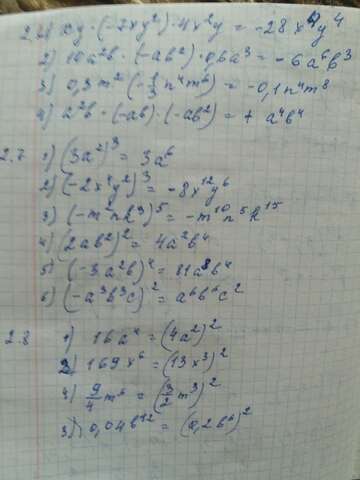 2.6 1) xy · (-7xy²) · 4x²y = -28x⁴y⁴
2) 10a²b · (-ab²) · 0,6a³ = -6a⁶b³
3) 0,3m² (-⅓n⁴m⁶) = -0,1n⁴m⁸
4) a²b · (-ab) · (-ab²) = + a⁴b⁴
2.7 1) (3a²)³ = 3a⁶
2) (-2x⁴y²)³ = -8x¹²y⁶
3) (-m²nk³)⁵ = -m¹⁰n⁵k¹⁵
4) (2ab²)² = 4a²b⁴
5) (-3a²b)⁴ = 81a⁸b⁴
6) (-a³b³c)² = a⁶b⁶c²
2.8 1) 16a⁴ = (4a²)²
2) 169x⁶ = (13x³)²
4) 9/4 m⁶ = (3/2 m³)²
3) 0,04b¹² = (0,2b⁶)²